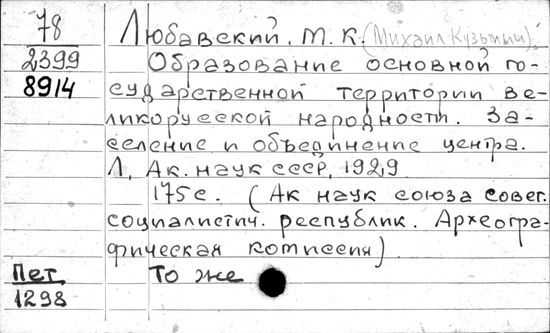 78
2399
8914
Любавский, М. К. (Михаил Кузьмич).
Образование основной го-
сударственной территории ве-
ликорусской народности. За-
селение и объединение центра.
Л, Ак. наук СССР, 1929
175 с. (Ак наук союза совет.
социалистич. республик. Археогра-
фическая комиссия)
Пет. То же
1298